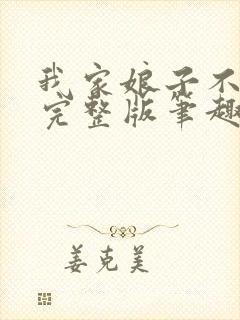 我家娘子不
完整版笔趣
姜克美